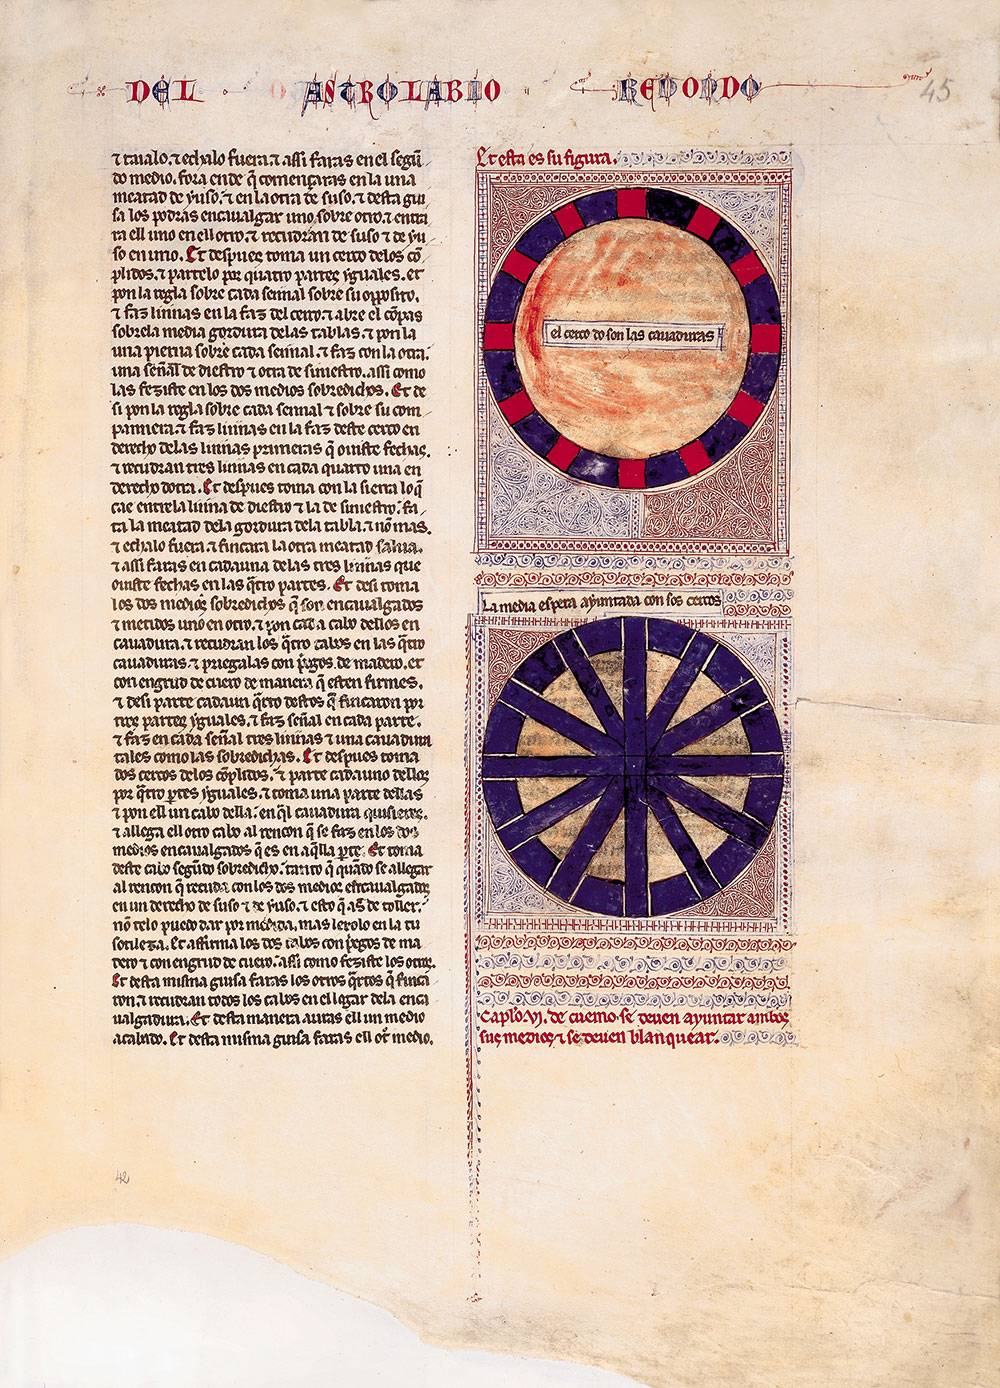 DEL ASTROLABIO REDONDO
45
⁊ taialo. ⁊ echalo fuera. ⁊ assi faras en el segũ
do medio. fora ende q̃ començaras en la una
meatad de yuso. ⁊ en la otra de suso. ⁊ desta gui
sa los podras encaualgar uno sobre otro. ⁊ entra
ra ell uno en ell otro. ⁊ recudran de suso ⁊ de yu
so en uno. Et despues toma un cerco delos cõ
plidos. ⁊ partelo por quatro partes yguales. et
pon la regla sobre cada sennal sobre su opposito.
⁊ faz linnas en la faz del cerco. ⁊ abre el cõpas
sobrela media gordura delas tablas. ⁊ pon la
una pierna sobre cada sennal. ⁊ faz con la otra.
una sennal de diestro ⁊ otra de siniestro. assi como
las feziste en los dos medios sobredichos. Et de
si pon la regla sobre cada sennal ⁊ sobre su com
pannera. ⁊ faz linnas en la faz deste cerco en
derecho delas linnas primeras q̃ ouiste fechas.
⁊ recudran tres linnas en cada quarto una en
derecho dotra. Et despues toma con la sierra lo q̃
cae entrela linna de diestro ⁊ la de siniestro. fa
ta la meatad dela gordura dela tabla. ⁊ nõ mas.
⁊ echalo fuera. ⁊ fincara la otra meatad salua.
⁊ assi faras en cadauna delas tres linnas que
ouiste fechas en las q̃tro partes. Et desi toma
los dos medios sobredichos q̃ son encaualgados
⁊ metidos uno en otro. ⁊ pon cada cabo dellos en
cauadura. ⁊ recudran los q̃tro cabos en las q̃tro
cauaduras. ⁊ priegalas con p̃gos de madero. et
con engrud de cuero de manera q̃ esten firmes.
⁊ desi parte cadaun q̃rto destos q̃ fincaron por
tres partes yguales. ⁊ faz sennal en cada parte.
⁊ faz en cada sennal tres linnas ⁊ una cauadura
tales como las sobredichas. Et despues toma
dos cercos delos cõplidos. ⁊ parte cadauno dellos
por q̃tro ptes yguales. ⁊ toma una parte dellas
⁊ pon ell un cabo della. en q̃l cauadura quisieres.
⁊ allega ell otro cabo al rencon q̃ se faz en los dos
medios encaualgados q̃ es en aq̃lla pte. Et toma
deste cabo segũdo sobredicho. tanto q̃ quando se allegar
al rencon q̃ recuda con los dos medios encaualgados
en un derecho de suso ⁊ de yuso. ⁊ esto q̃ as de toller.
nõ telo puedo dar por medida. mas lexolo en la tu
sotileza. Et affirma los dos cabos con p̃gos de ma
dero ⁊ con engrud de cuero. assi como feziste los otros.
Et desta misma guisa faras los otros q̃rtos q̃ finca
ron. ⁊ recudran todos los cabos en el logar dela enca
ualgadura. Et desta manera auras ell un medio
acabado. Et desta misma guisa faras ell ot̃ medio.
42
Et esta es su figura.
el cerco do son las cauaduras
La media espera ayuntada con sos cercos
Caplo. VI. de cuemo se deuen ayuntar ambos
sus medios ⁊ se deuen blanquear.